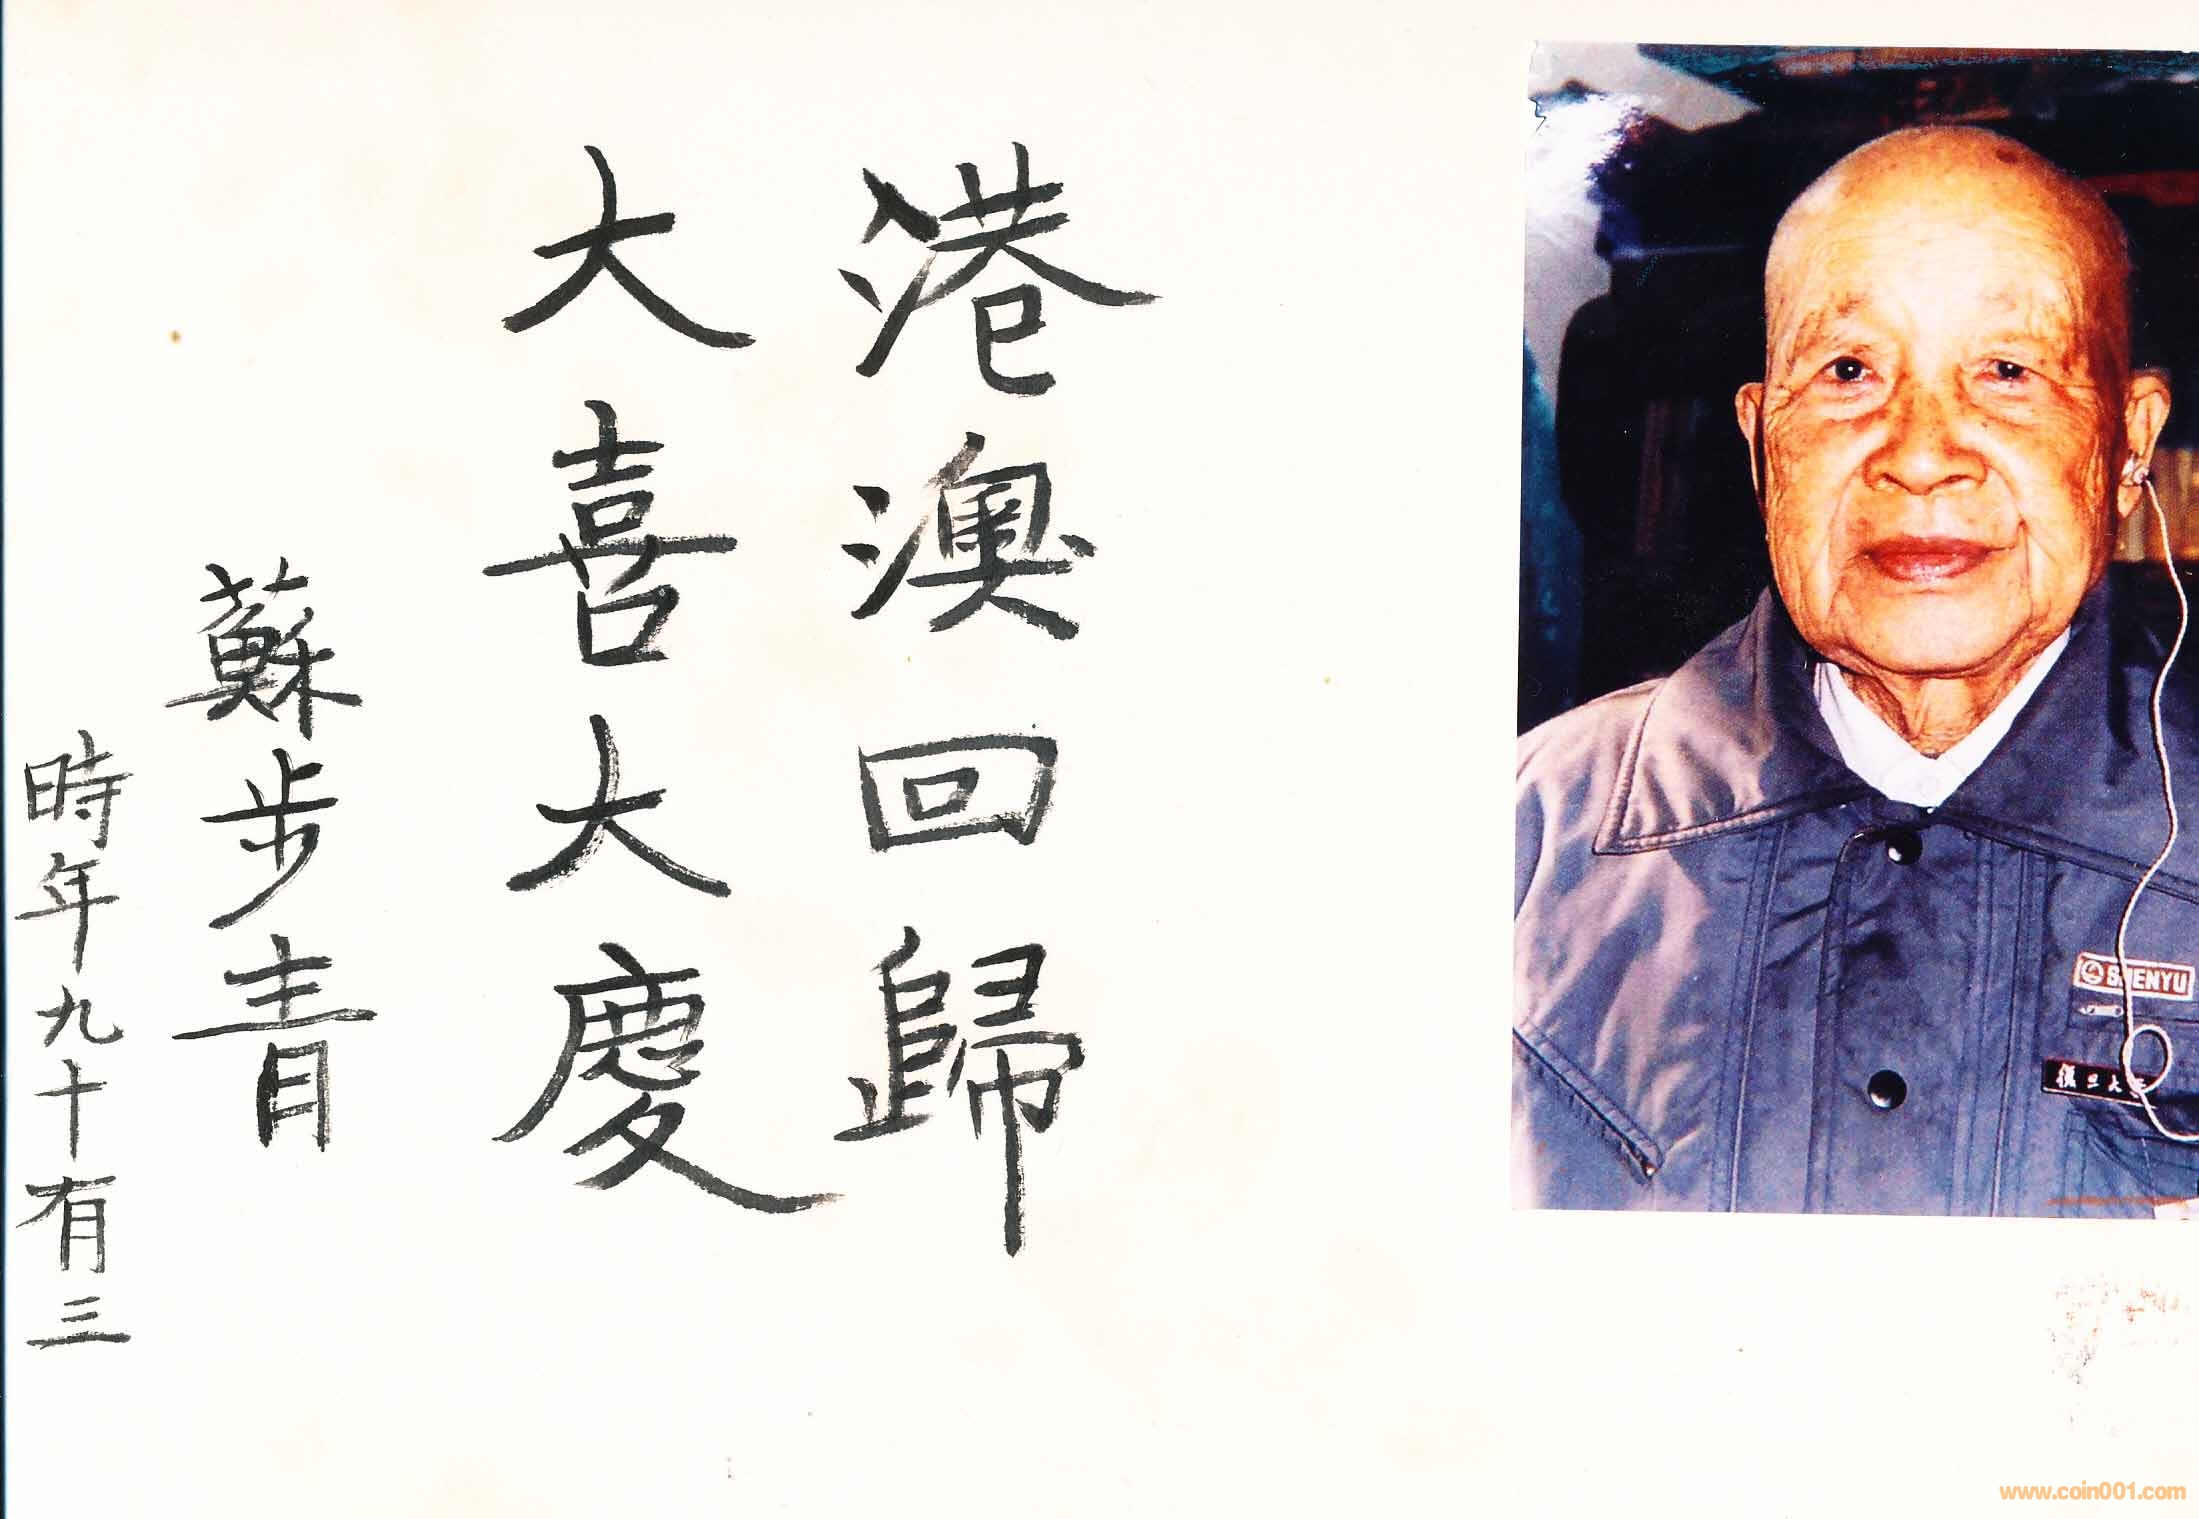 港澳回歸
大喜大慶
蘇步青
時年九十有三
SHENYU
復旦大學
www.coin001.com